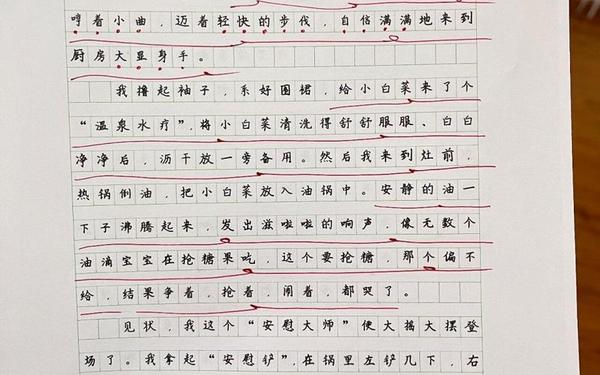 哼着小曲，迈着轻快的步伐，自信满满地来到
厨房大显身手。
我撸起袖子，系好围裙，给小白菜来了个
“温泉水疗”，将小白菜清洗得舒舒服服、白白
净净后，沥干放一旁备用。然后我来到灶前，
热锅倒油，把小白菜放入油锅中。安静的油一
下子沸腾起来，发出滋啦啦的响声，像无数个
油滴宝宝在抢糖果吃，这个要抢糖，那个偏不
给，结果争着，抢着，闹着，都哭了。
见状，我这个“安慰大师”便大摇大摆登
场了。我拿起“安慰铲”，在锅里左铲几下，右